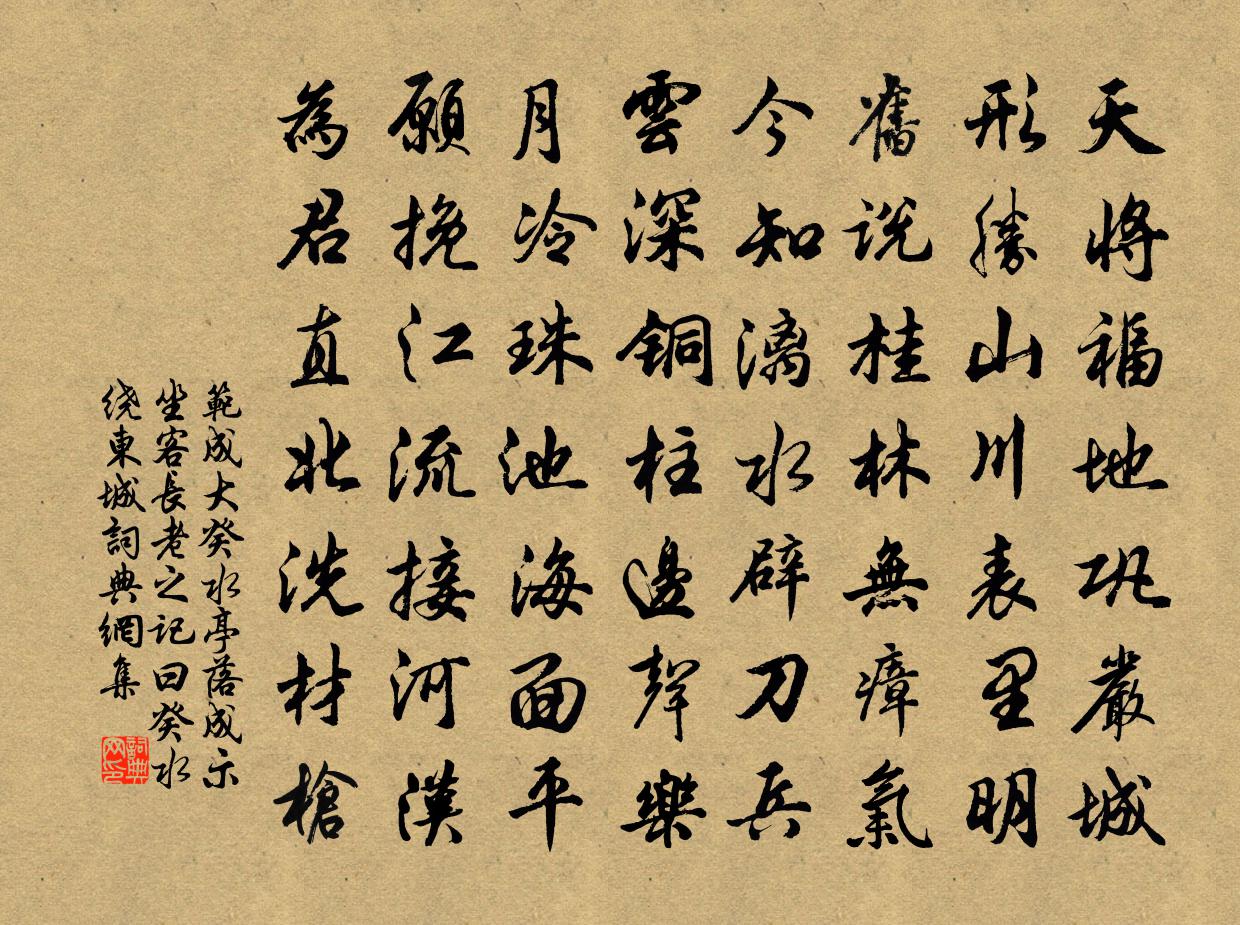 天將福地巩嚴城
形勝山川表里明
舊說桂林無瘴氣
今知漓水辟刀兵
雲深銅柱邊聲樂
月冷珠池海面平
願挽江流接河漢
為君直北洗材槍
範成大癸水亭落成示
坐客長老之記曰癸水
绕東城詞典網集
詞典网印